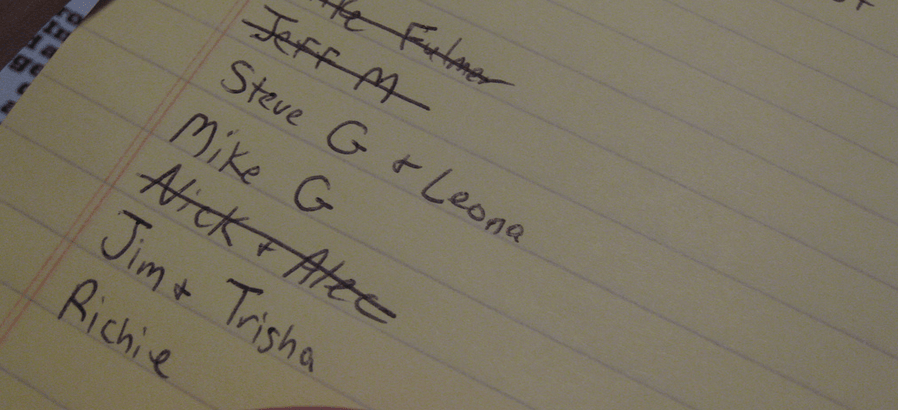 Fulmer
Jeff M
Steve G + Leona
Mike G
Nick + Alec
Jim + Trisha
Richie